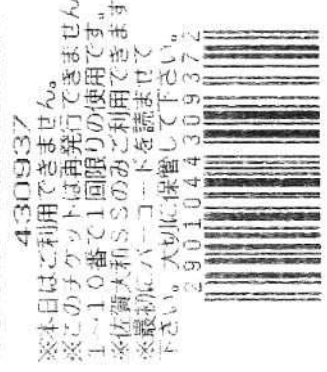 430937
※本日はご利用できません。
※このチケットは再発行できません
1～10番で1回限りの使用です。
※佐賀大和SSのみご利用できます
※最初にバーコードを読ませて
下さい。大切に保管して下さい。
2901044309372